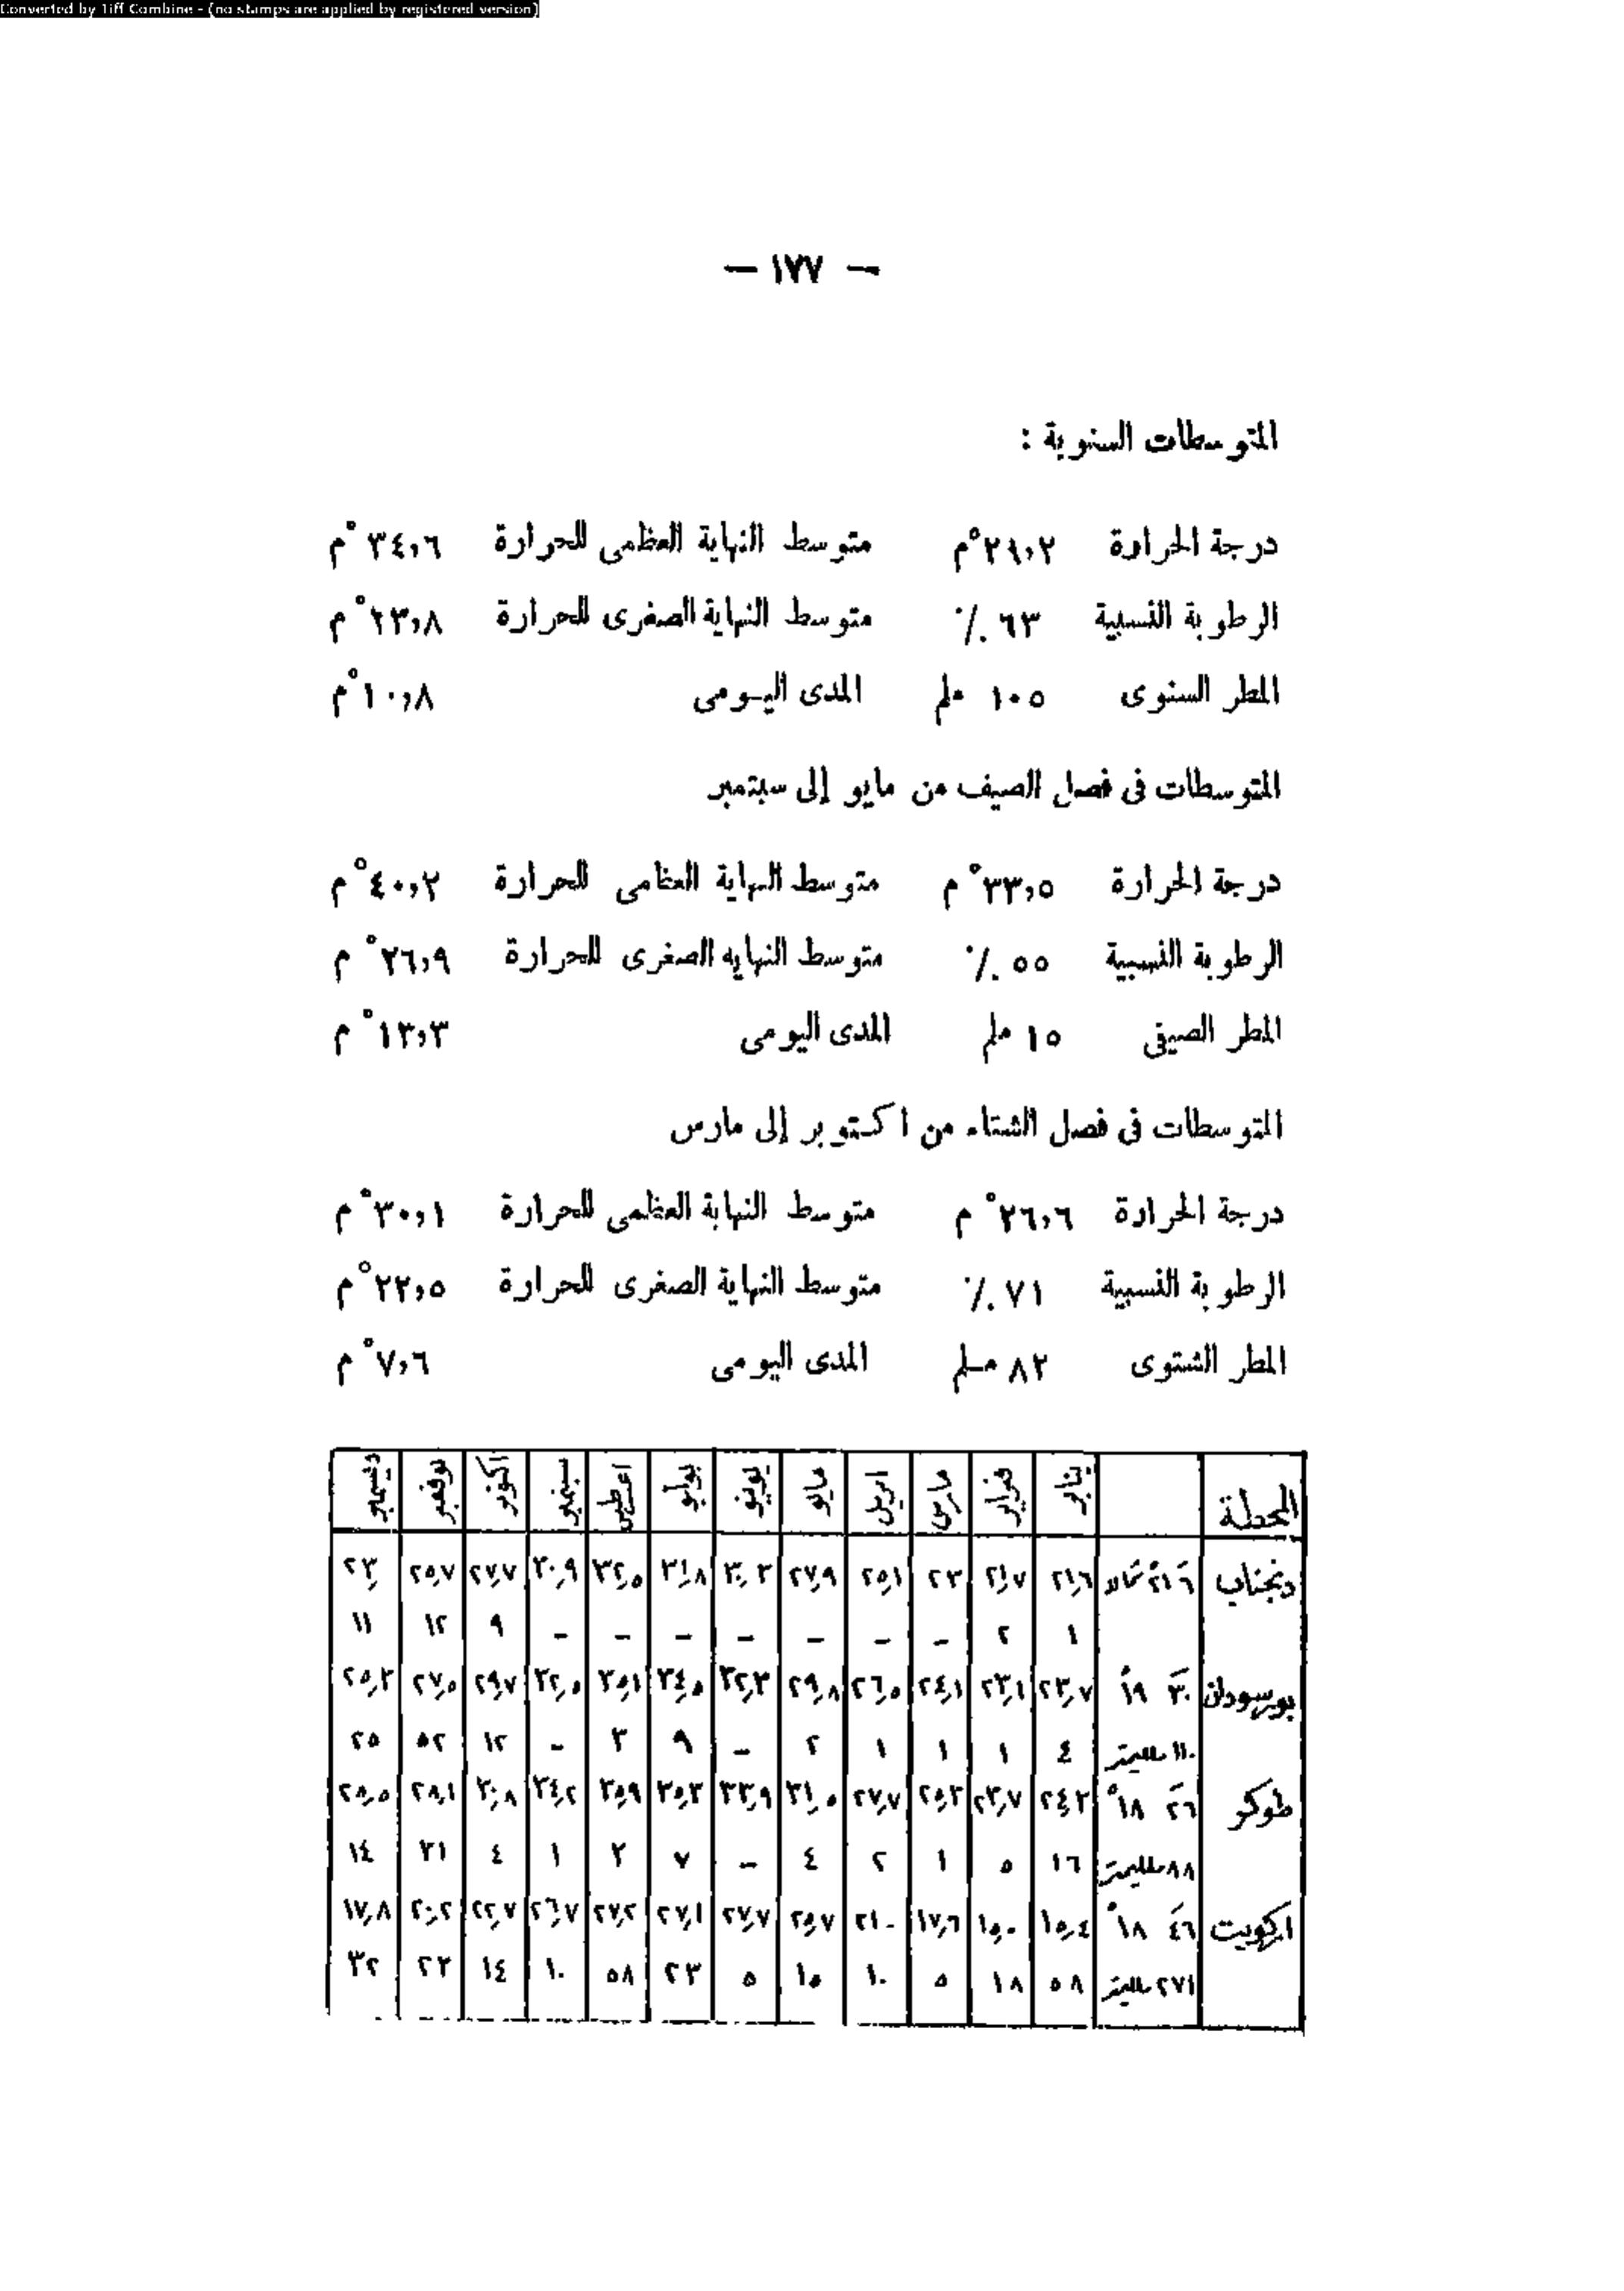 Converted by Tiff Combine - (no stamps are applied by registered version)
— ١٧٧ —
المتوسطات السنوية :
درجة الحرارة ٢٩,٢°م متوسط النهاية العظمى للحرارة ٣٤,٦°م
الرطوبة النسبية ٦٣ ٪ متوسط النهاية الصغرى للحرارة ٢٣,٨°م
المطر السنوى ١٠٥ ملم المدى اليومى ١٠,٨°م
المتوسطات فى فصل الصيف من مايو إلى سبتمبر
درجة الحرارة ٣٣,٥°م متوسط النهاية العظمى للحرارة ٤٠,٢°م
الرطوبة النسبية ٥٥ ٪ متوسط النهايه الصغرى للحرارة ٢٦,٩°م
المطر الصيفى ١٥ ملم المدى اليومى ١٣,٣°م
المتوسطات فى فصل الشتاء من اكتوبر إلى مارس
درجة الحرارة ٢٦,٦°م متوسط النهاية العظمى للحرارة ٣٠,١°م
الرطوبة النسبية ٧١ ٪ متوسط النهاية الصغرى للحرارة ٢٢,٥°م
المطر الشتوى ٨٢ ملم المدى اليومى ٧,٦°م
المحطة يناير فبراير مارس ابريل مايو يونيو يوليو اغطس سبتمبر اكتوبر نوفمبر ديسمبر
دنجناب ٢١,٦ ٢١,٧ ٢٣ ٢٥,١ ٢٧,٩ ٣٠,٣ ٣١,٨ ٣٢,٥ ٣٠,٩ ٢٧,٧ ٢٥,٧ ٢٣,
١ ٢ – – – – – – – ٩ ١٢ ١١
بورسودان ٣٠ ١٩° ٢٣,٧ ٢٣,١ ٢٤,١ ٢٦,٥ ٢٩,٨ ٣٢,٣ ٣٤,٥ ٣٥,١ ٣٢,٥ ٢٩,٧ ٢٧,٥ ٢٥,٣
١١٠ ملليمتر ٤ ١ ١ ١ ٢ – ٩ ٣ – ١٢ ٥٢ ٢٥
طوكر ٢٦ ١٨° ٢٤,٣ ٢٣,٧ ٢٥,٣ ٢٧,٧ ٣١,٥ ٣٣,٩ ٣٥,٣ ٣٥,٩ ٣٤,٢ ٣٠,٨ ٢٨,١ ٢٨,٥
٨٨ ملليمتر ١٦ ٥ ١ ٢ ٤ – ٧ ٢ ١ ٤ ٣١ ١٤
اركويت ٤٦ ١٨° ١٥,٤ ١٥,٠ ١٧,٦ ٢١,٠ ٢٥,٧ ٢٧,٧ ٢٧,١ ٢٧,٢ ٢٦,٧ ٢٢,٧ ٢٠,٢ ١٧,٨
٢٧١ ملليمتر ٥٨ ١٨ ٥ ١٠ ١٥ ٥ ٢٣ ٥٨ ١٠ ١٤ ٢٣ ٣٢